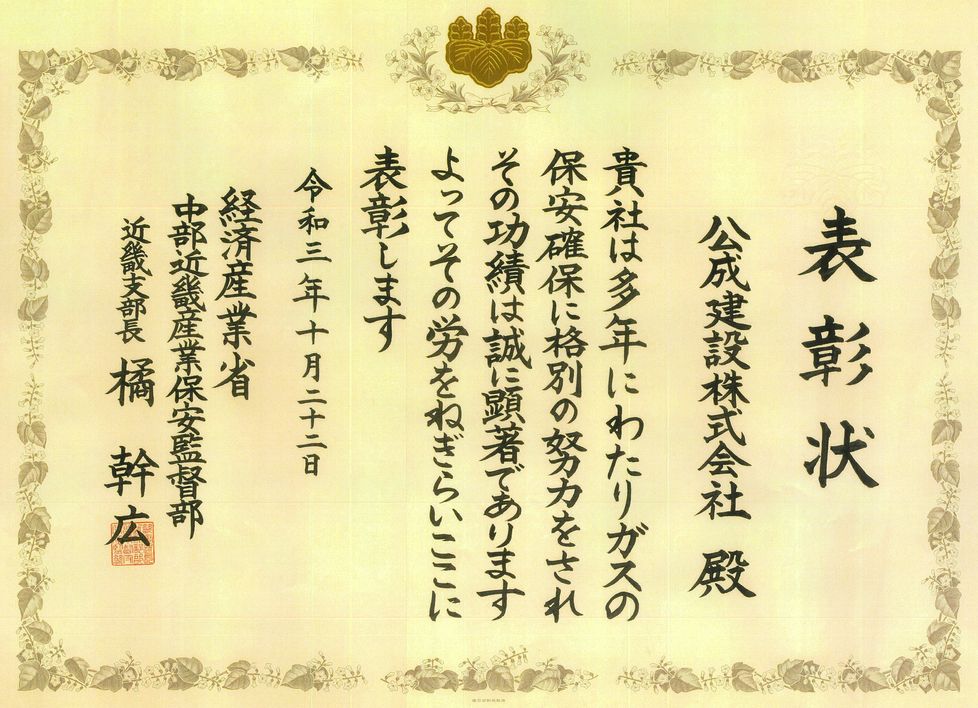 表彰状
公成建設株式会社 殿
貴社は多年にわたりガスの
保安確保に格別の努力をされ
その功績は誠に顕著であります
よってその労をねぎらいここに
表彰します
令和三年十月二十二日
経済産業省
中部近畿産業保安監督部
近畿支部長 橘 幹広